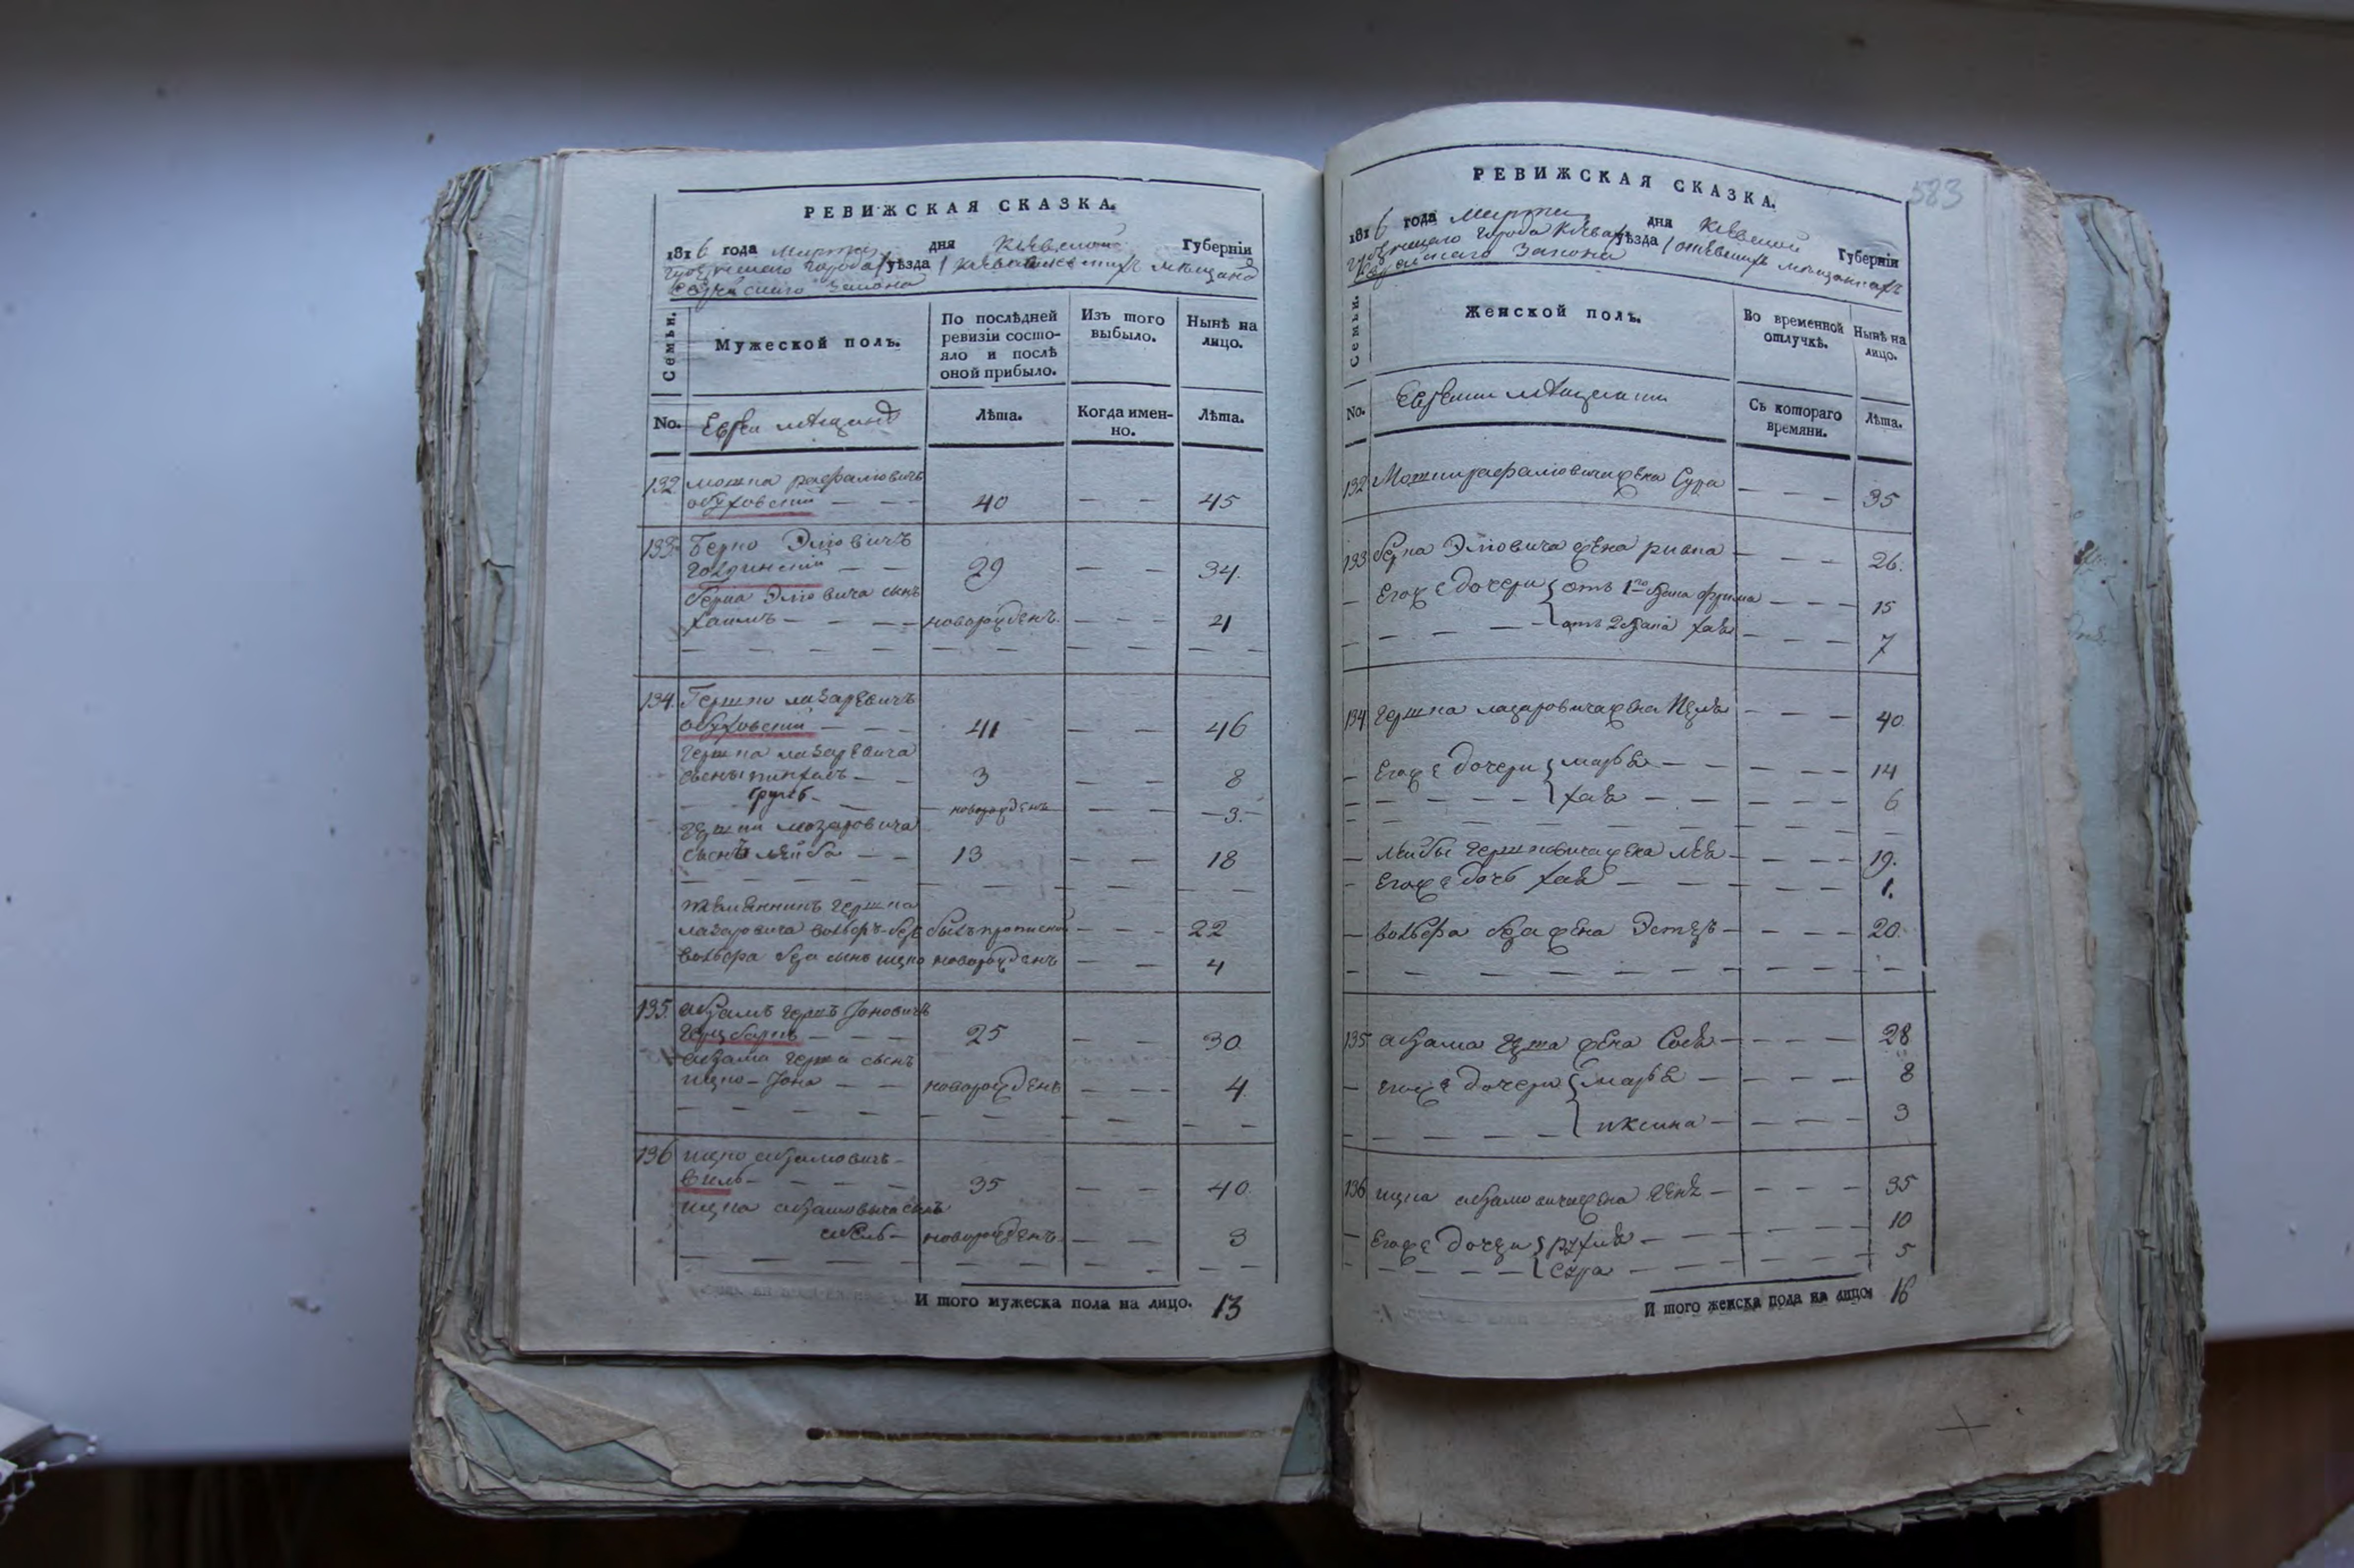 РЕВИЖСКАЯ СКАЗКА.
1816 года марта дня Кіевской Губерніи
губернскаго города уѣзда мѣщанъ
еврейскаго закона
Семьи.
Мужеской полъ.
По послѣдней ревизіи состояло и послѣ оной прибыло.
Изъ того выбыло.
Нынѣ на лицо.
No. Евреи мѣщанѣ
Лѣта.
Когда именно.
Лѣта.
132 Мошка рафаловичъ
обуховскій — — 40 — — 45
133 Берко Эліовичъ
— — 29 — — 34.
Берка Эліовича сынъ
хаимъ — — — новорожденъ. — — — 4
134 Гершко лазаревичъ
обуховскій — — 41 — — 46
Гершка лазаревича
сынъ пинхасъ — — 3 — — 8
— — новорожденъ — — — 3. —
Гершки лазаровича
сынъ лейба — — 13 — — 18
племянникъ Гершка
лазаровича волворъ-беръ былъ прописной — — — 22
волвера бера сынъ ицко новорожденъ — — 4
135. абрамъ Гершъ Іоновичъ
Герцбаргъ — — — 25 — — 30
абрама Герша сынъ
ицко-Іона — — новорожденъ — — — 4.
136 ицко абрамовичъ —
виль — — — — 35 — — 40.
ицка абрамовича сынъ
— новорожденъ. — — 3
И того мужеска пола на лицо. 13
583
РЕВИЖСКАЯ СКАЗКА.
1816 года марта дня Кіевской Губерніи
губернскаго города Кіева уѣзда мѣщанкахъ
еврейскаго закона
Семьи.
Женской полъ.
Во временной отлучкѣ.
Нынѣ на лицо.
No. Еврейки мѣщанки
Съ котораго времяни.
Лѣта.
132 Мошки рафаловича жена Сура — — — 35
133 берка Эліовича жена ривка — — — 26.
— Егоже дочери { отъ 1го брака фрима — — — 15
— — — — { отъ 2 брака хая — — — 7
134 Гершка лазаровича жена — — — 40
— Егоже дочери { марья — — — — 14
— — — — { хая — — — — 6
— лейбы Гершковича жена лея — — — — 19.
— Егоже дочь хая — — — — 1.
— волвера бера жена Эстеръ — — — — 20.
135 абрама Герша жена Сося — — — — 28
— егоже дочери { марья — — — — 8
— — — — { — — — — 3
136 ицка абрамовича жена Геня — — — — 35
— Егоже дочери { рухля — — — — 10
— — — — { Сура — — — — 5
И того женска пола на лицо. 16